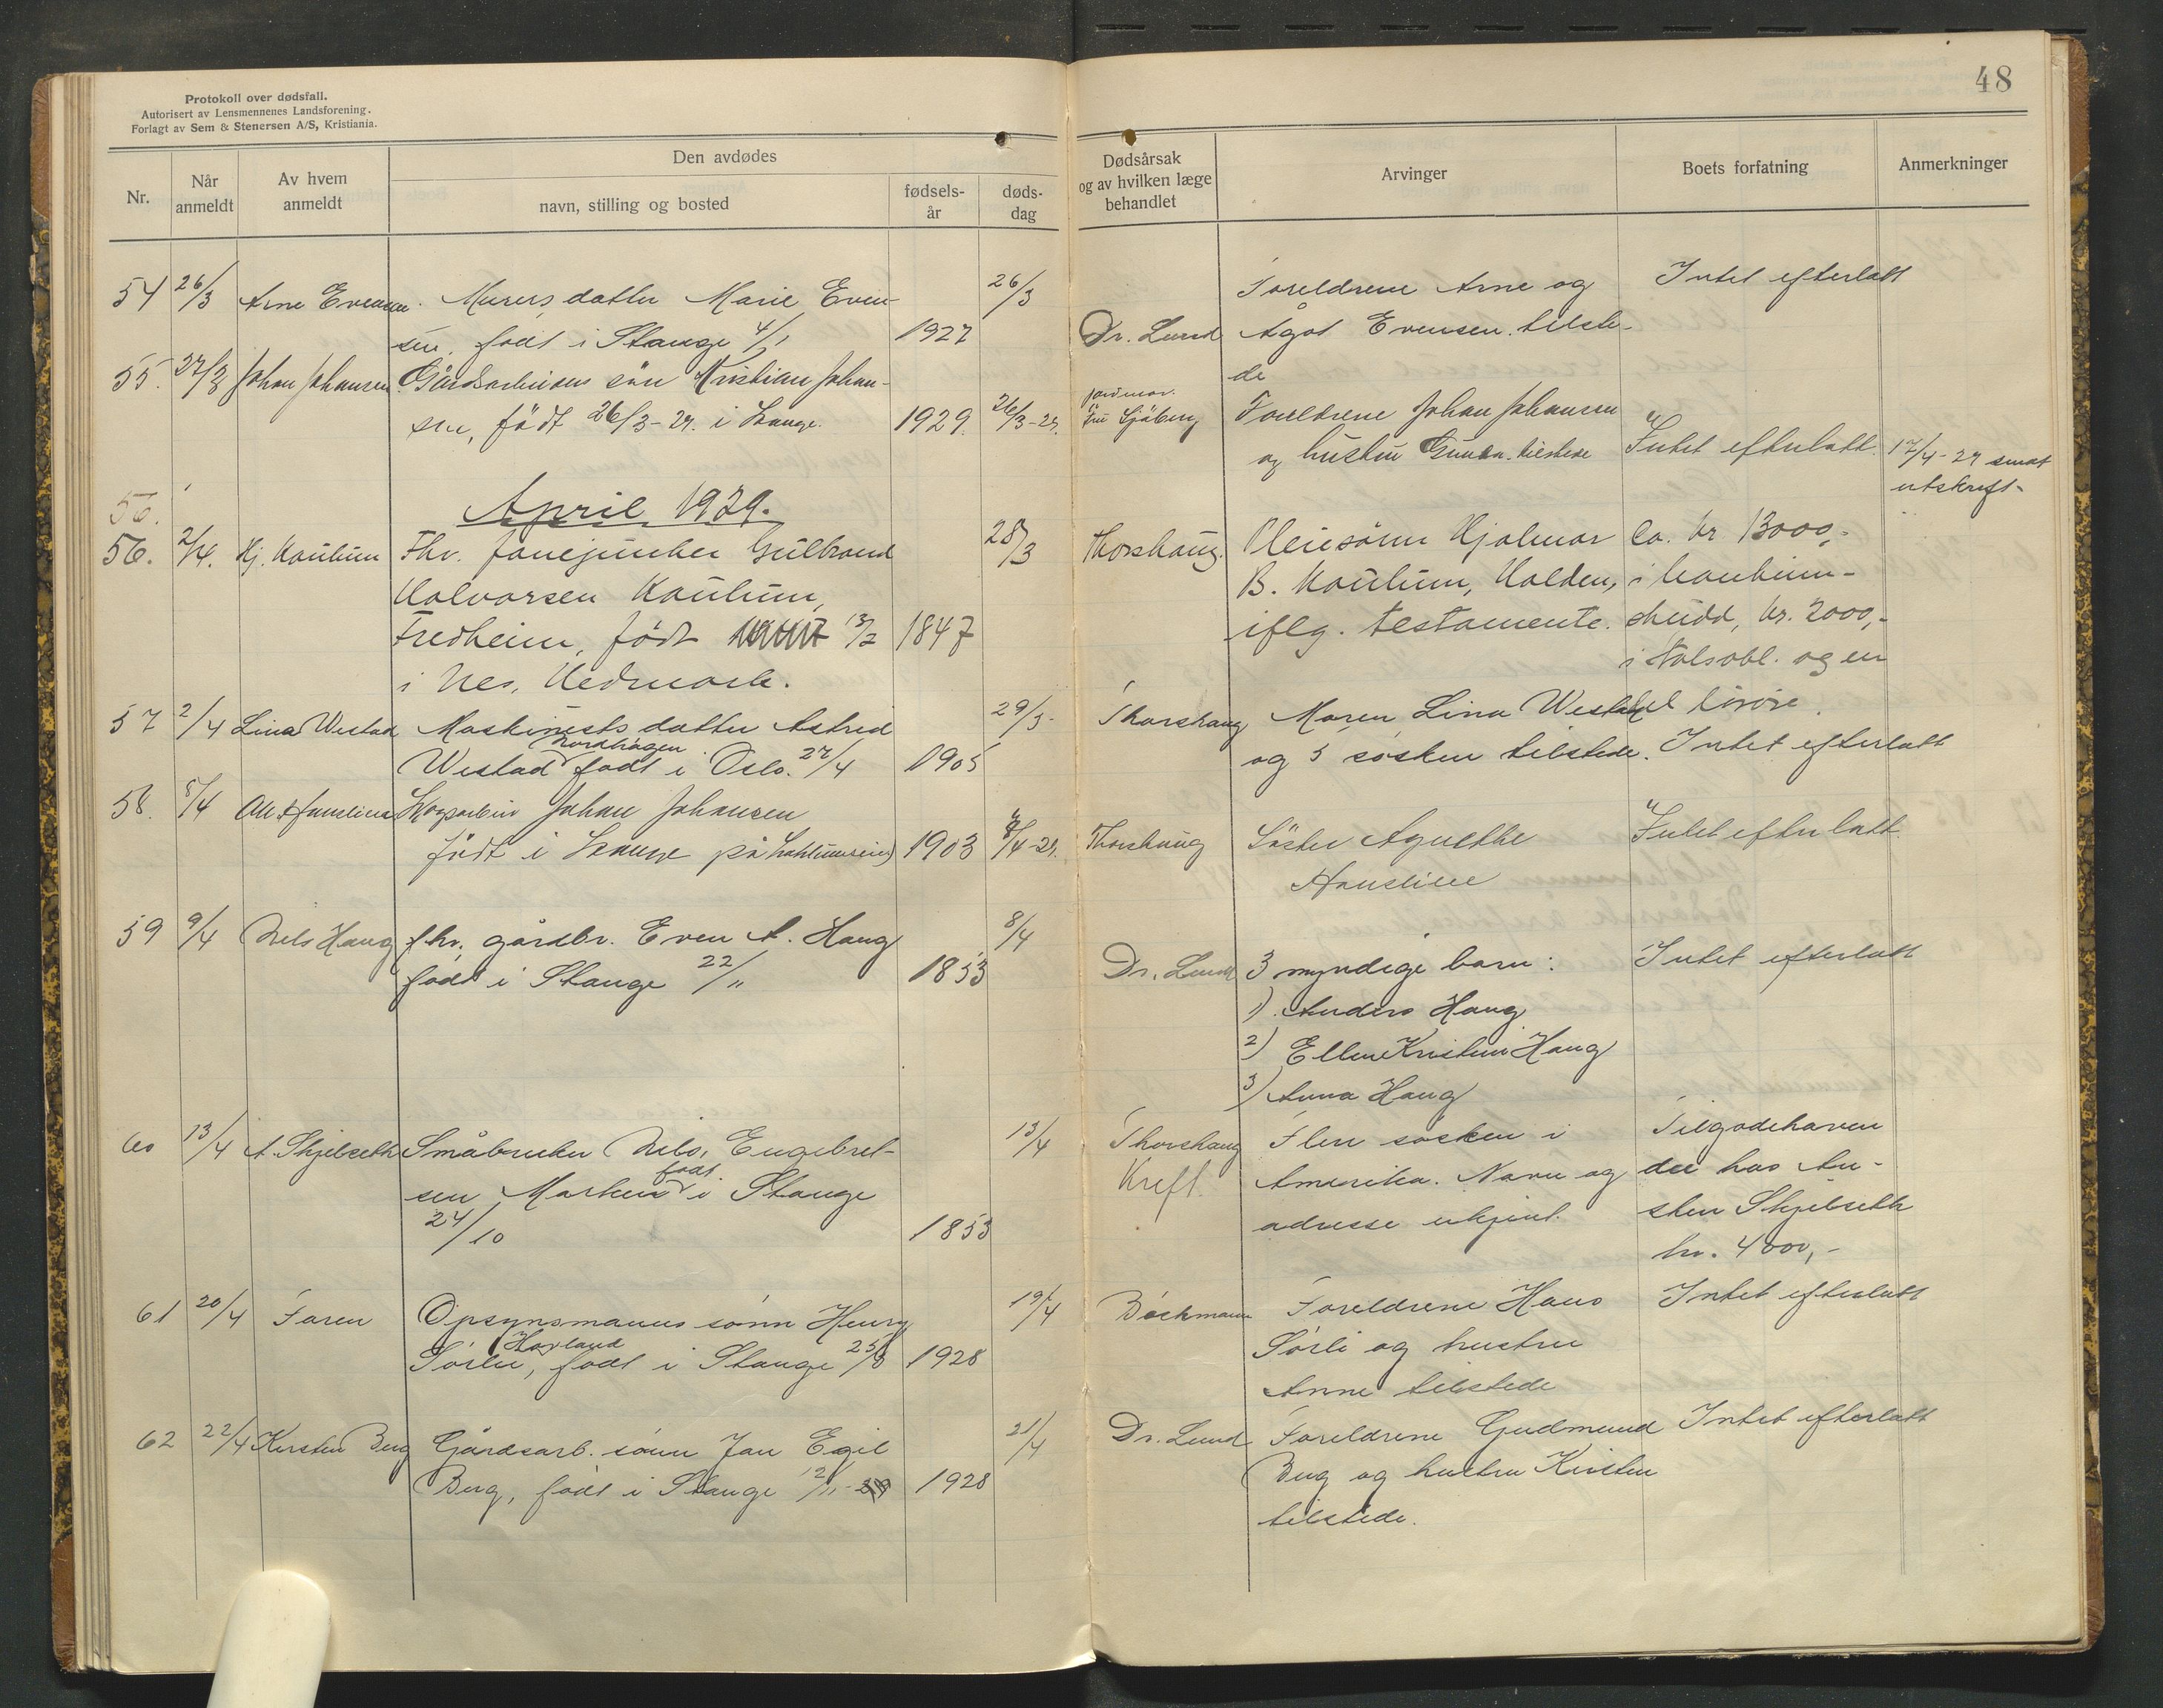 48
Protokoll over dødsfall.
Autorisert av Lensmennenes Landsforening.
Forlagt av Sem & Stenersen A/S, Kristiania.
Nr.
Når anmeldt
Av hvem anmeldt
Den avdødes
navn, stilling og bosted
fødsels-år
døds-dag
Dødsårsak og av hvilken læge behandlet
Arvinger
Boets forfatning
Anmerkninger
54 26/3 Arne Evensen Murers datter Marie Even- 26/3
sen, født i Stange 4/1 1927
Dr. Lund
Foreldrene Arne og
Ågot Evensen tilste-
de
Intet efterlatt
55. 27/3 Johan Johansen Gårdsarbeiders sön Kristian Johan-
sen, födt 26/3-29. i Stange. 1929. 26/3-29.
jordmor.
Fru Sjöberg
Foreldrene Johan Johansen
og hustru Gunda tilstede
Intet efterlatt.
17/4-29 sendt
utskrift.
56.
April 1929.
56. 2/4. Hj. Kaulum Fhv. fanejunker Gulbrand 28/3
Halvorsen Kaulum,
Fredheim, födt 13/2 1847
i Nes, Hedmark.
Thorshaug.
Pleiesønn Hjalmar
B. Kaulum, Halden,
iflg. testamente.
Ca. kr. 13000,-
i bankinn-
skudd, kr. 2000,-
i Statsobl. og en
del lösöre.
57 2/4 Lina Westad Maskinists datter Astrid 29/3
Nordhagen
Westad født i Oslo. 27/4 1905
Thorshaug
Moren Lina Westad
og 5 søsken tilstede.
Intet efterlatt
58. 8/4 Skogsarbeider Johan Johansen
födt i Stange på 1903 8/4-29.
Thorshaug
Söster Agnethe
Hanslien
Intet efterlatt.
59 9/4 Nels Haug fhv. gårdbr. Even A. Haug 8/4
født i Stange 22/11 1853
Dr. Lund
3 myndige barn:
1) Anders Haug
2) Ellen Kristine Haug
3) Anna Haug
Intet efterlatt
60 13/4 A. Skjelseth Småbruker Nils Engebret- 13/4
født
sen Marken i Stange
24/10 1853
Thorshaug
Kreft.
Flere søsken i
Amerika. Navn og
adresse ukjent.
Tilgodehaven
de hos An-
sten Skjelseth
kr. 4000,-
61 20/4 Faren Opsynsmanns sønn Henry 19/4
Havland
Sørli, født i Stange 25/8 1928
Böckmann
Foreldrene Hans
Sørli og hustru
Anne tilstede
Intet efterlatt
62 22/4 Kirsten Berg Gårdsarb. sønn Jan Egil 21/4
Berg, født i Stange 12/11 1928
Dr. Lund
Foreldrene Gudmund
Berg og hustru Kirsten
tilstede.
Intet efterlatt